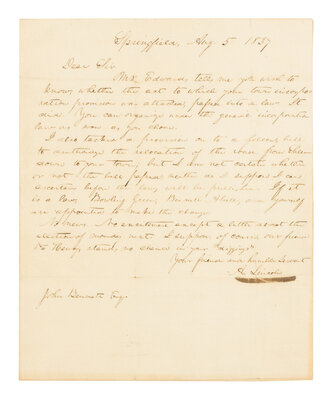 Springfield, Aug. 5 1837
Dear Sir
Mr. Edwards tells me you wish to
know, whether the act to which your town incorpo
ration provision was attached, passed into a law. It
did. You can organize under the general incorporation
law as soon as you choose.
I also tacked a provision on to a fellow's bill
to authorize the relocation of the road from
down to your town, but I am not certain whether
or not the bill passed, neither do I suppose I can
ascertain before the law will be published. If it
is a law, Bowling Green, Bennett and yourself
are appointed to make the change.
No news. No excitement except a little about the
election of monday next. I suppose of course our friend
Dr. Henry stands no chance in your "diggings"
Your friend and humble servant
A. Lincoln
John Bennett Esq.